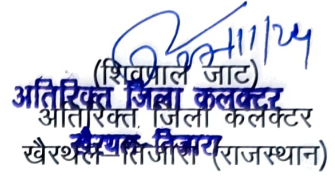 (शिवपाल जाट)
अतिरिक्त जिला कलक्टर
अतिरिक्त जिला कलेक्टर
खैरथल-तिजारा
खैरथल-तिजारा (राजस्थान)